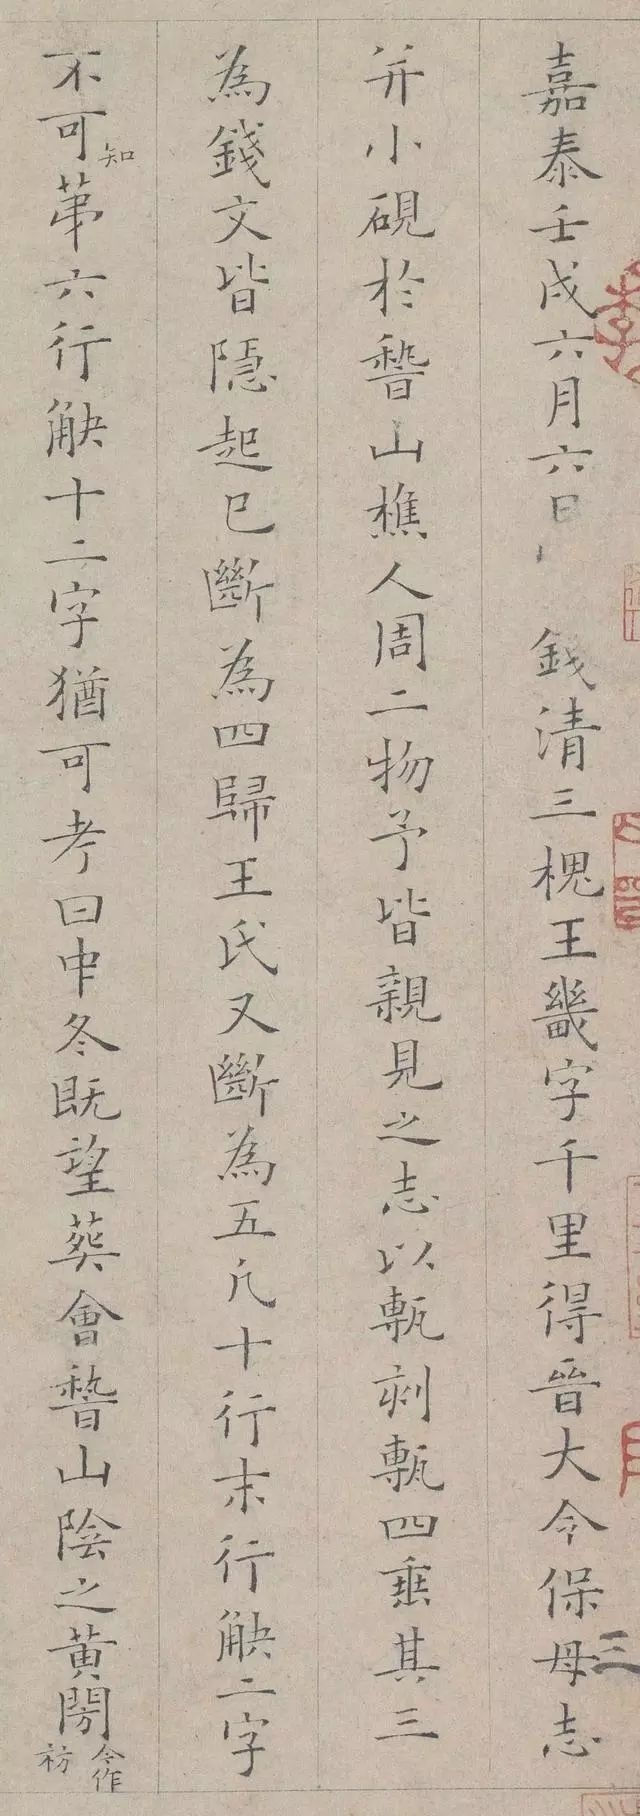 嘉泰壬戌六月六日 錢清三槐王畿字千里得晉大令保母志
并小硯於稽山樵人周二物予皆親見之志以甎刻甎四垂其三
為錢文皆隱起已斷為四歸王氏又斷為五凡十行末行觖二字
不可知苐六行觖十二字猶可考曰中冬既望葬會稽山陰之黃閍
今作祊
三